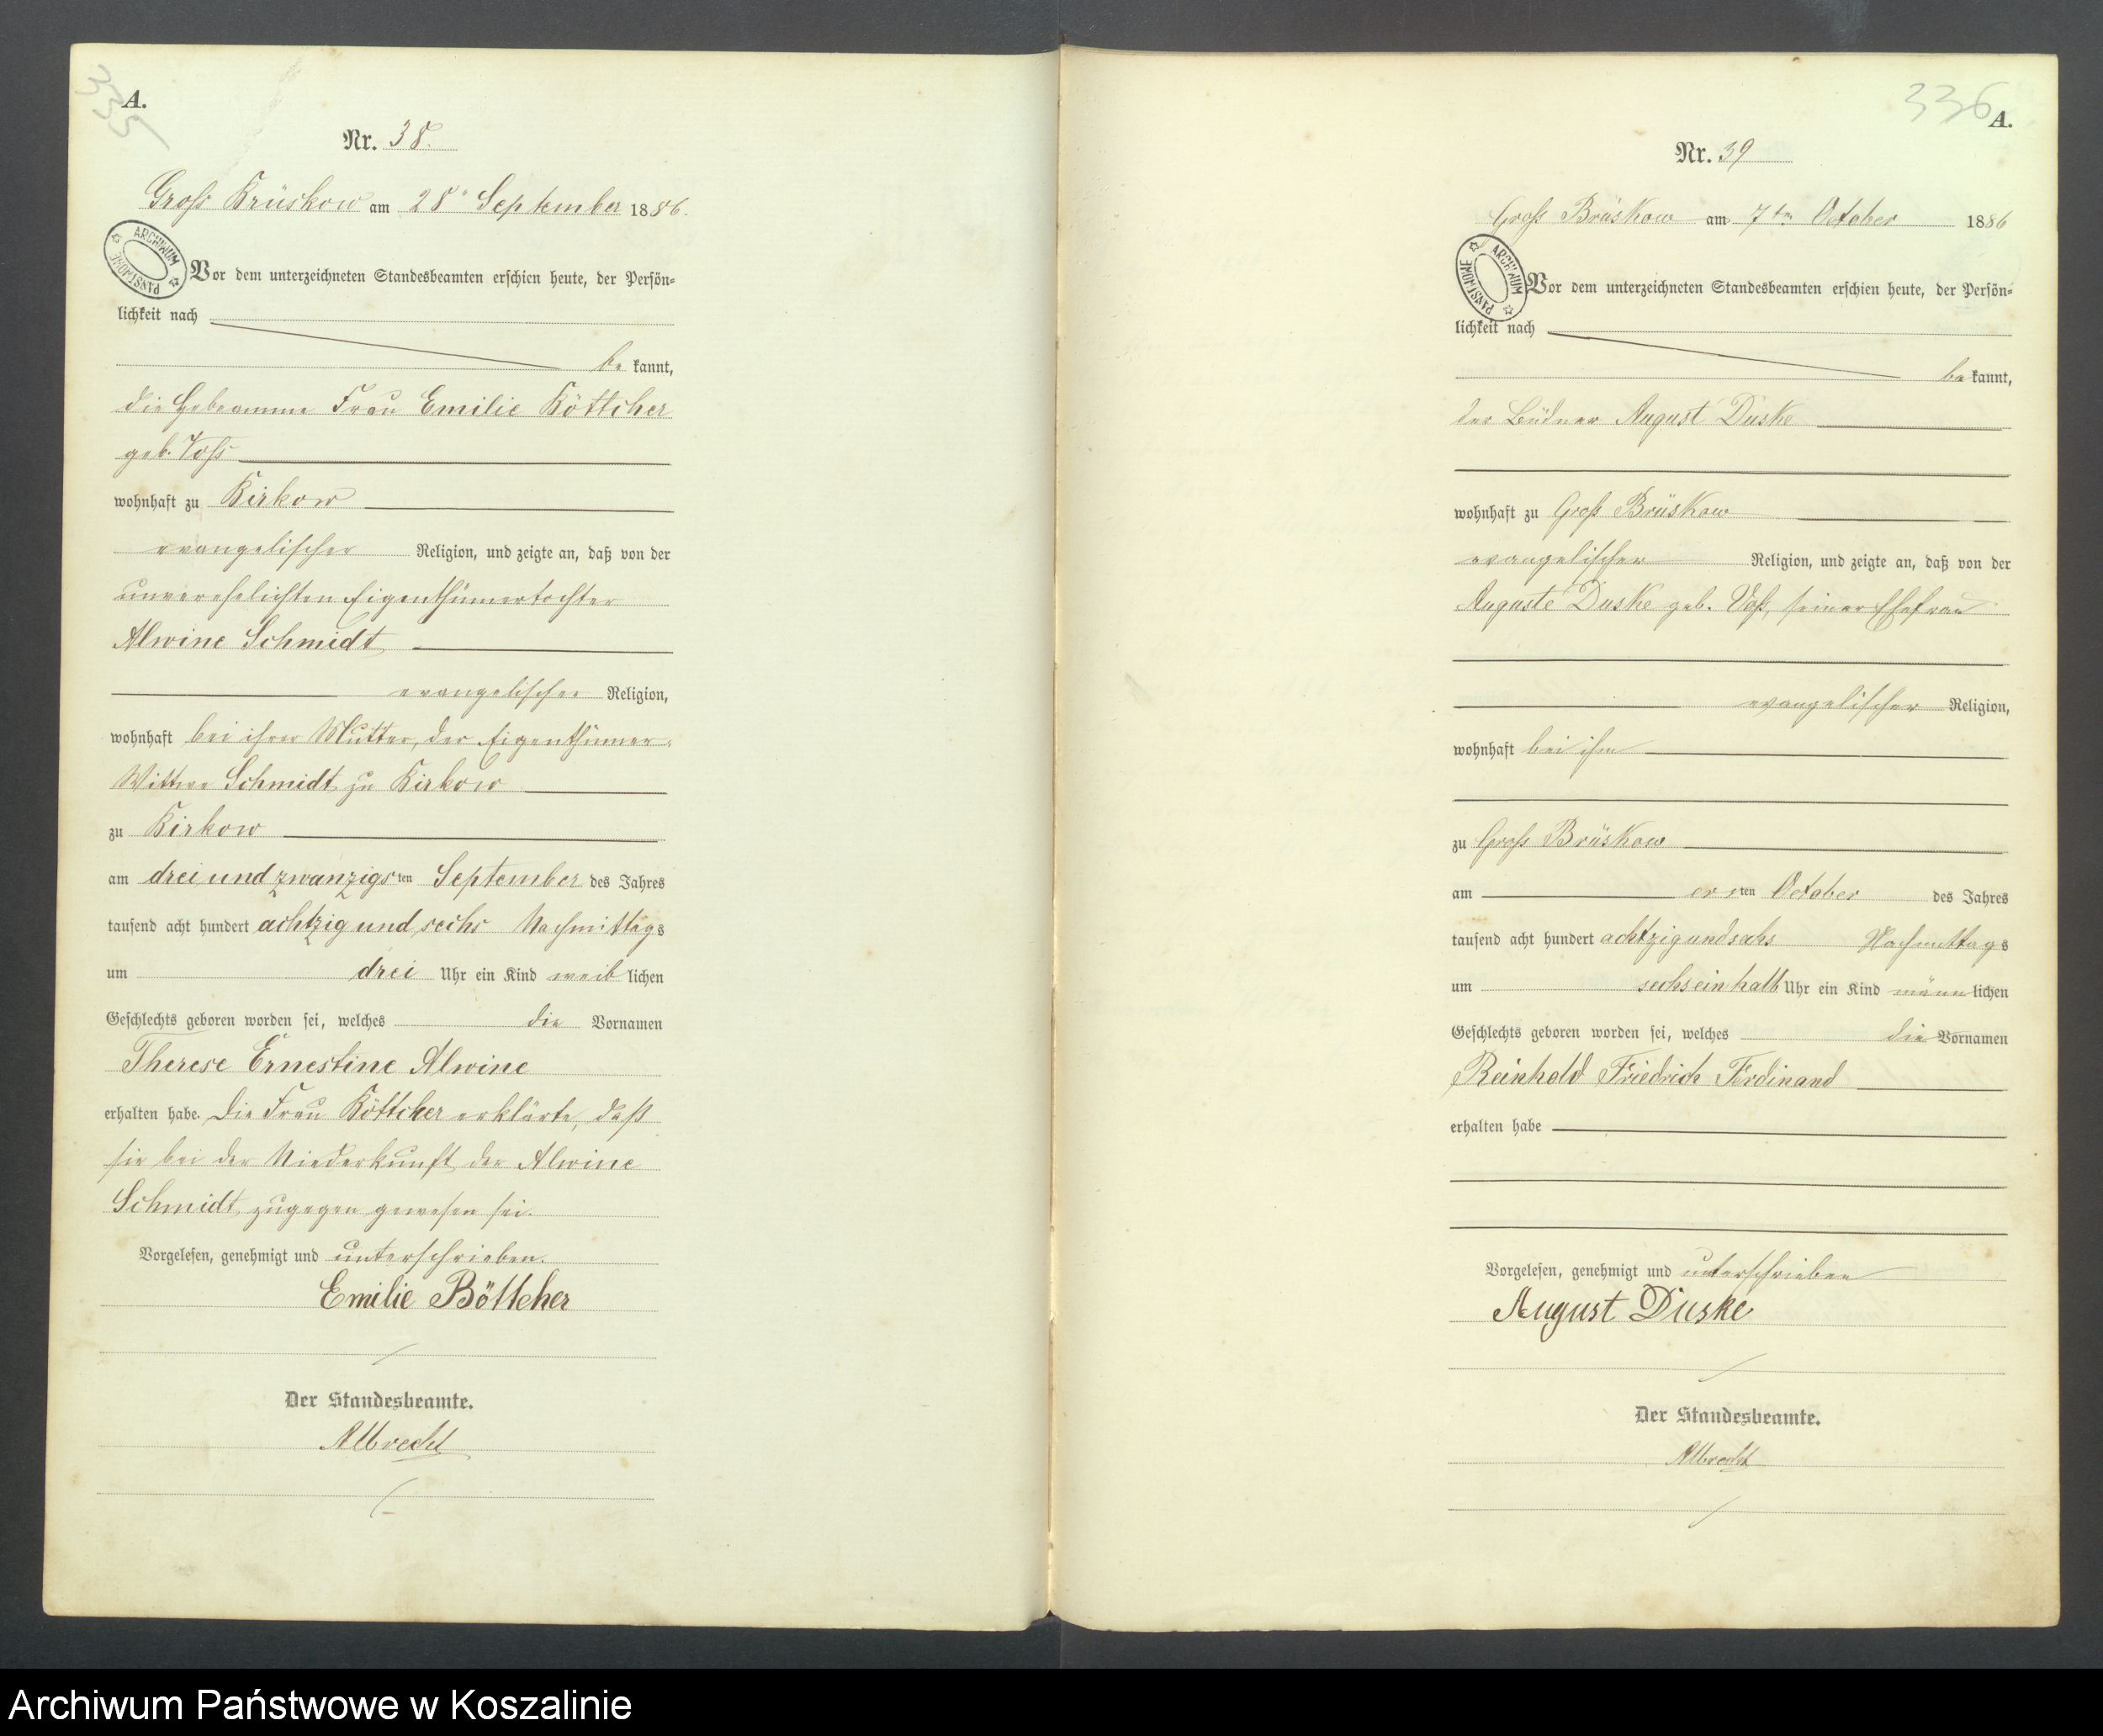 335
A.
Nr. 38.
Groß Brüskow am 28. September 1886.
ARCHIWUM PAŃSTWOWE
Vor dem unterzeichneten Standesbeamten erschien heute, der Persön-
lichkeit nach
be kannt,
die Hebeamme Frau Emilie Böttcher
geb. Voß
wohnhaft zu Birkow
evangelischer Religion, und zeigte an, daß von der
unverehelichten Eigenthümertochter
Alwine Schmidt
evangelischer Religion,
wohnhaft bei ihrer Mutter, der Eigenthümer-
Wittwe Schmidt zu Birkow
zu Birkow
am drei und zwanzigsten September des Jahres
tausend acht hundert achtzig und sechs Nachmittags
um drei Uhr ein Kind weib lichen
Geschlechts geboren worden sei, welches die Vornamen
Therese Ernestine Alwine
erhalten habe. Die Frau Böttcher erklärte, daß
sie bei der Niederkunft der Alwine
Schmidt zugegen gewesen sei.
Vorgelesen, genehmigt und unterschrieben.
Emilie Böttcher
Der Standesbeamte.
Albrecht
336
A.
Nr. 39
Groß Brüskow am 7ten October 1886
ARCHIWUM PAŃSTWOWE
Vor dem unterzeichneten Standesbeamten erschien heute, der Persön-
lichkeit nach
be kannt,
der Büdner August Duske
wohnhaft zu Groß Brüskow
evangelischer Religion, und zeigte an, daß von der
Auguste Duske geb. Voß, seiner Ehefrau
evangelischer Religion,
wohnhaft bei ihm
zu Groß Brüskow
am ersten October des Jahres
tausend acht hundert achtzigundsechs Nachmittags
um sechseinhalb Uhr ein Kind männ lichen
Geschlechts geboren worden sei, welches die Vornamen
Reinhold Friedrich Ferdinand
erhalten habe
Vorgelesen, genehmigt und unterschrieben
August Duske
Der Standesbeamte.
Albrecht
Archiwum Państwowe w Koszalinie